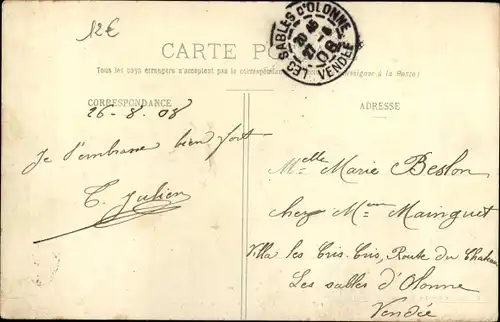 12€
CARTE PO
LES SABLES D'OLONNE
VENDÉE
08
Tous les pays étrangers n'acceptent pas la correspondance
à la Poste)
CORRESPONDANCE
ADRESSE
26-8.08
Je t'embrasse bien fort
T. Julien
Melle Marie Beslon
chez Mme Mainguet
Villa les Cris-Cris, Route du Chateau
Les sables d'Olonne
Vendée